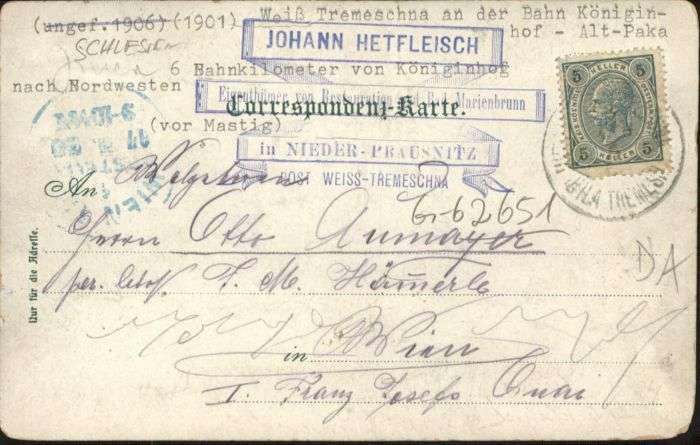 (ungef. 1906) (1901) Weiß Tremeschna an der Bahn Königin-
hof - Alt-Paka
SCHLESIEN
JOHANN HETFLEISCH
6 Bahnkilometer von Königinhof
nach Nordwesten
Eigenthümer von Restauration und Bad Marienbrunn
Correspondenz-Karte.
(vor Mastig)
in NIEDER-PRAUSNITZ
POST WEISS-TREMESCHNA
5 HELLER 5
5 HELLER 5
BILA TREMES
WIEN
An
G-62651
Herrn Otto Aumayer
DA
Nur für die Adresse.
per Adr. J. M. Hämerle
in Wien
I. Franz Josefs Quai